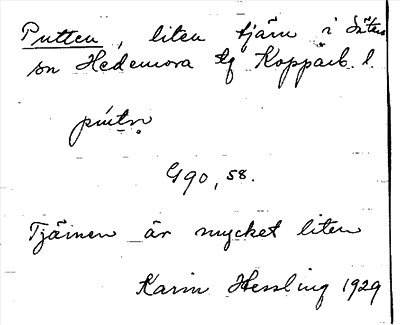 Putten, liten tjärn i Säters
sn Hedemora tg Kopparb. l.
pút:n
G90, 58.
Tjärnen är mycket liten
Karin Hessling 1929